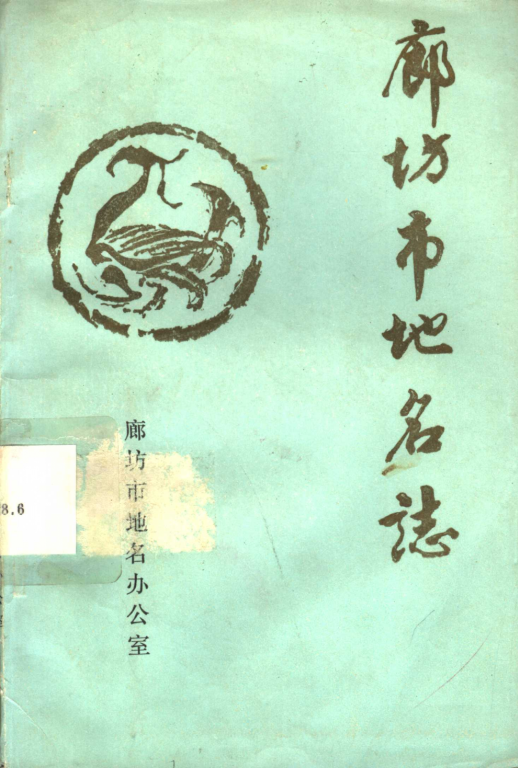 廊坊市地名誌
廊坊市地名办公室
8.6